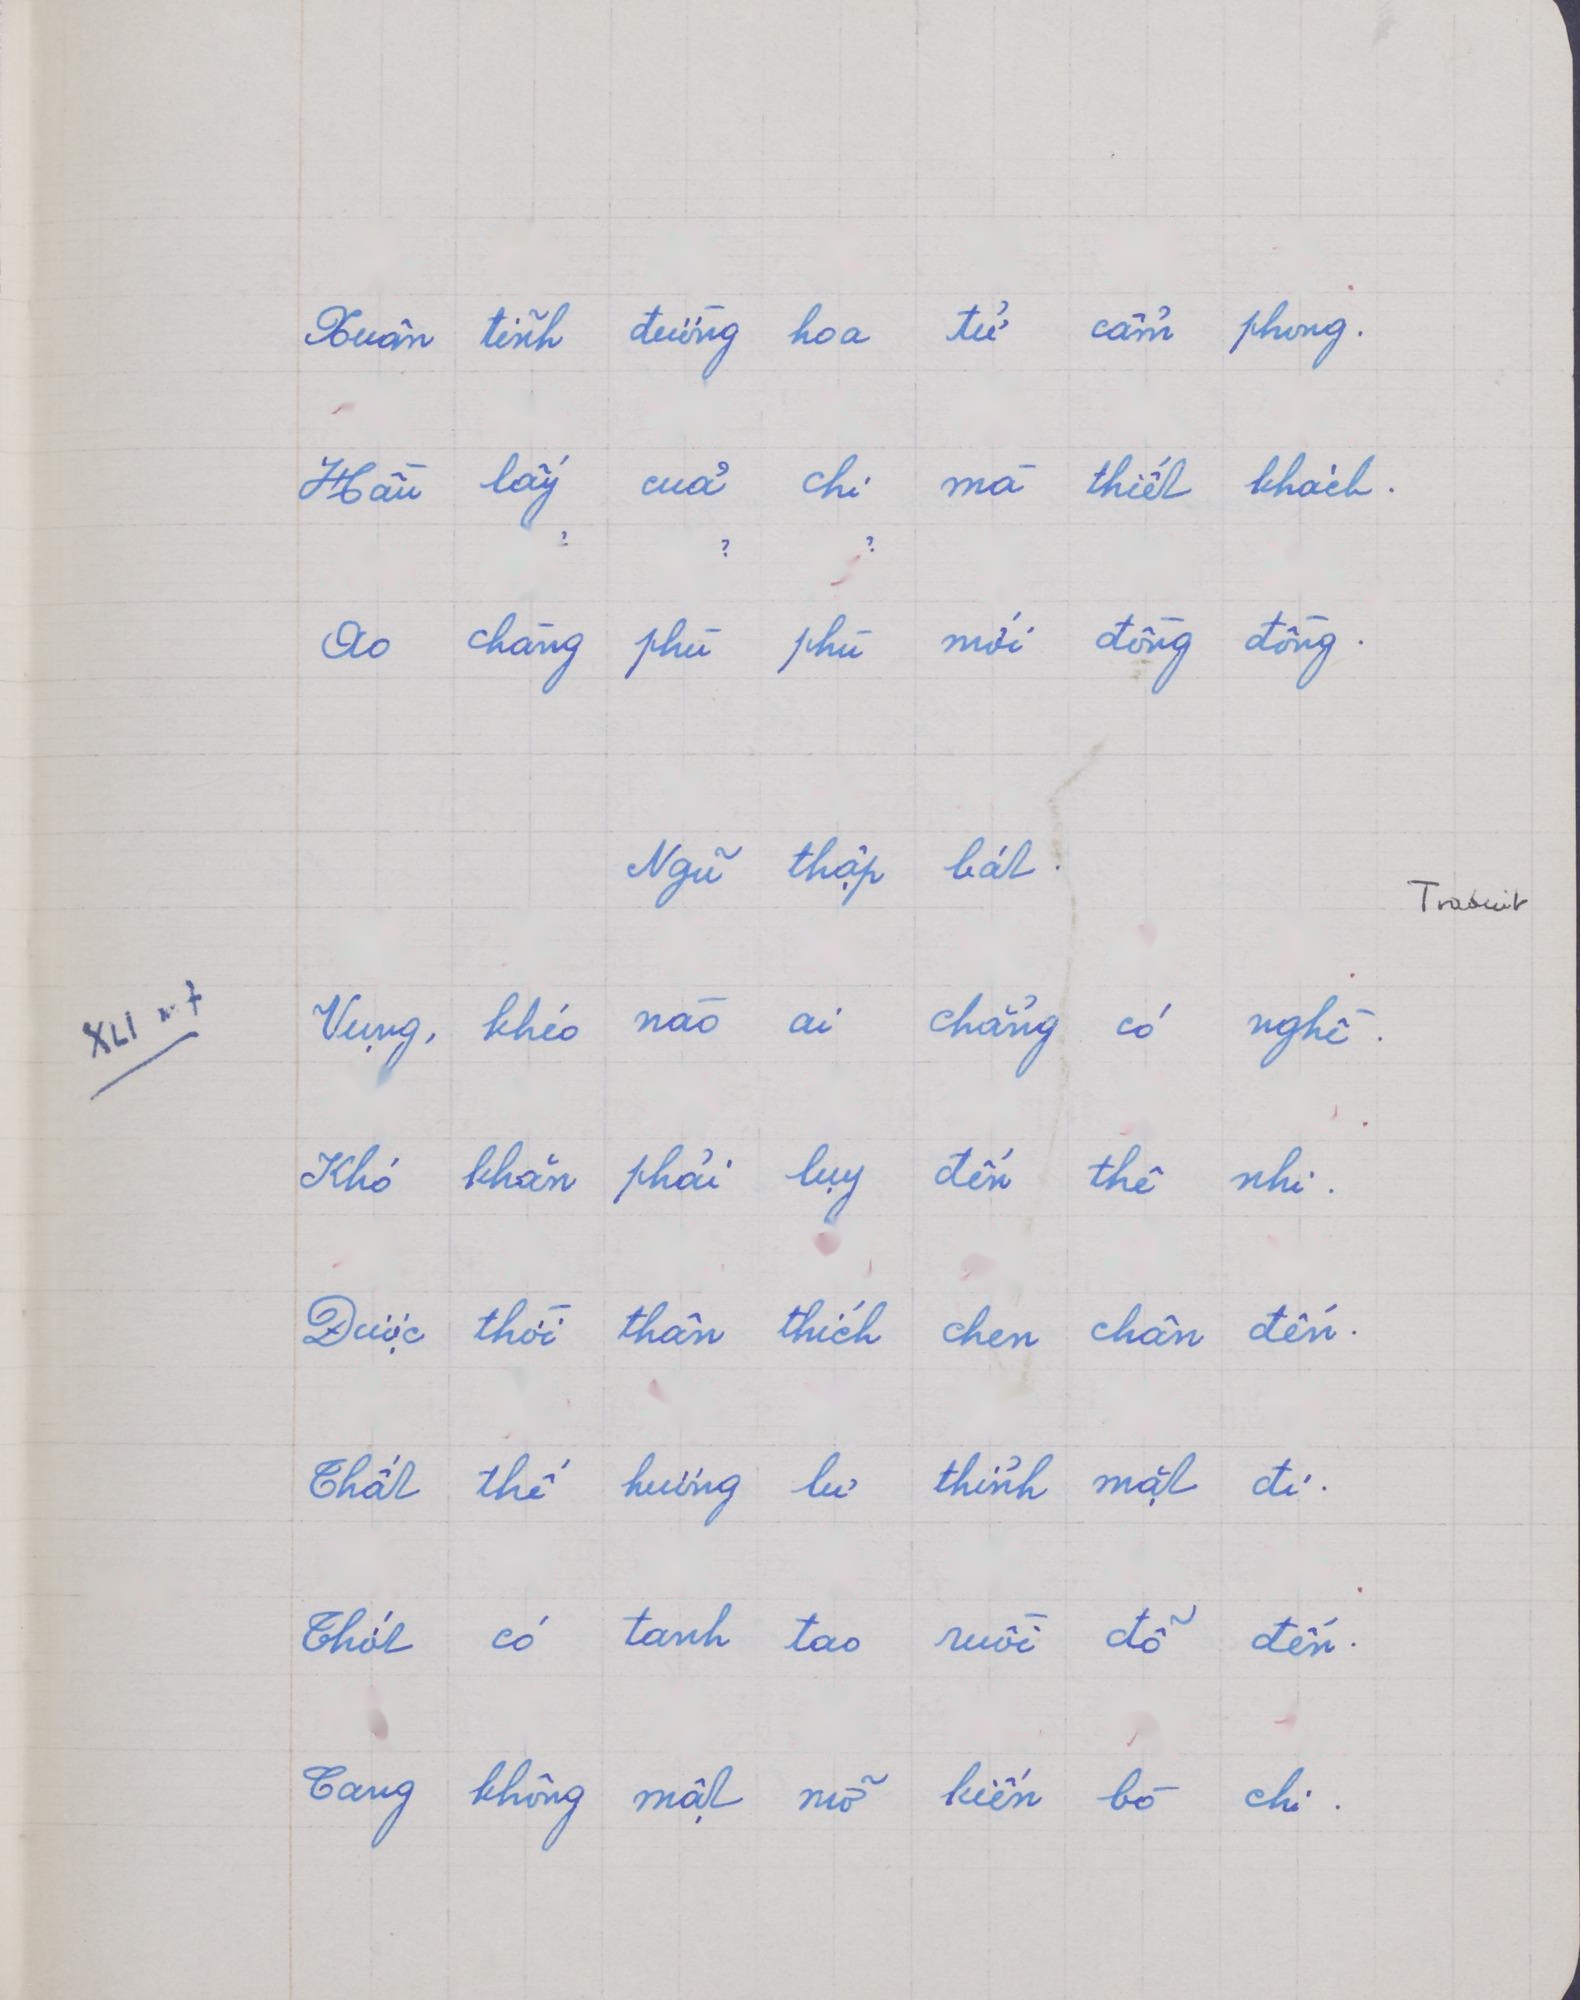 Xuân tĩnh đường hoa tử cẩm phong.
Hầu lấy cuả chi mà thiết khách.
? ? ?
Ao chàng phù phù mới đồng đồng.
Ngũ thập bát.
Traduit
XLI n. 7
Vụng, khéo nào ai chẳng có nghề.
Khó khăn phải lụy đến thê nhi.
Được thời thân thích chen chân đến.
Thất thế hương lư thỉnh mặt đi.
Thớt có tanh tao ruồi đỗ đến.
Tang không mật mỡ kiến bò chi.